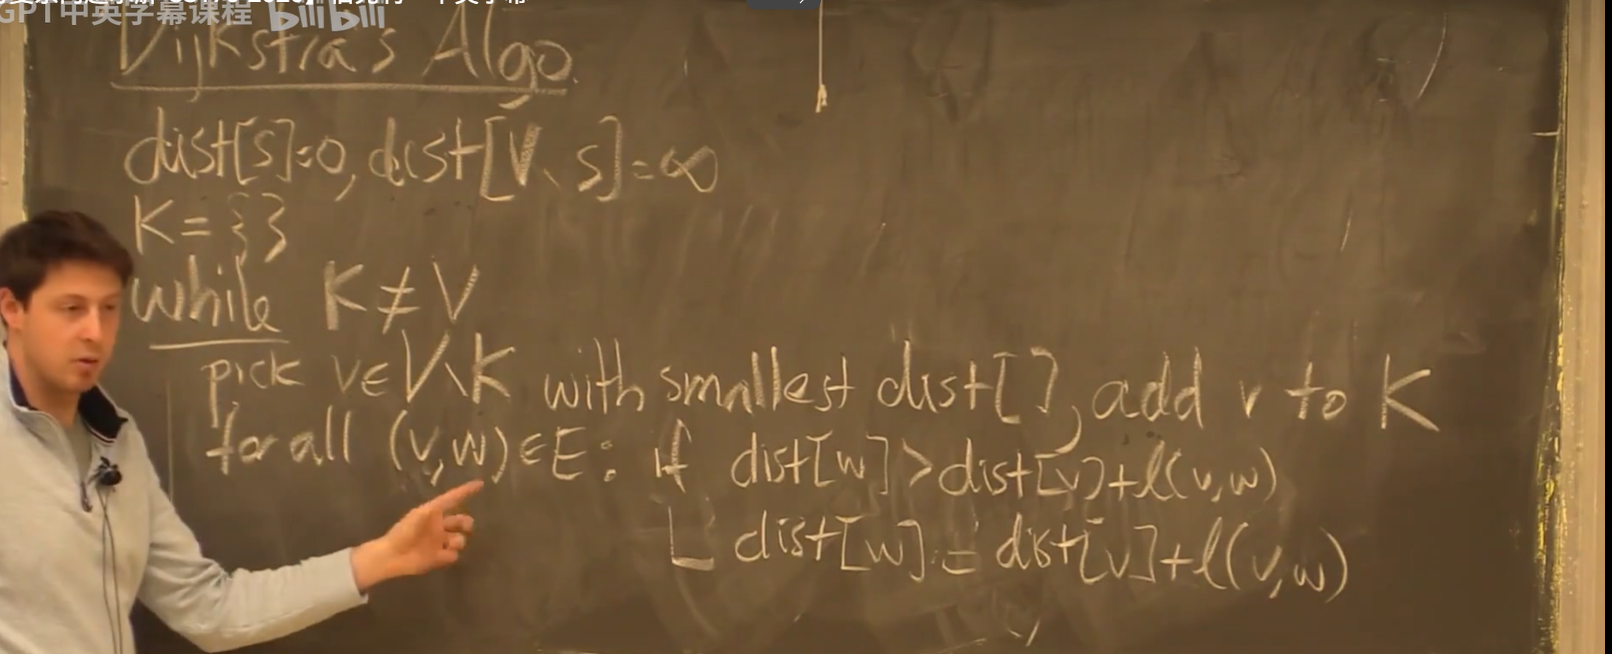 GPT中英字幕课程 bilibili
Dijkstra's Algo.
dist[s]=0, dist[V\s]=∞
K={}
while K≠V
pick v∈V\K with smallest dist[], add v to K
for all (v,w)∈E: if dist[w]>dist[v]+l(v,w)
dist[w]:=dist[v]+l(v,w)